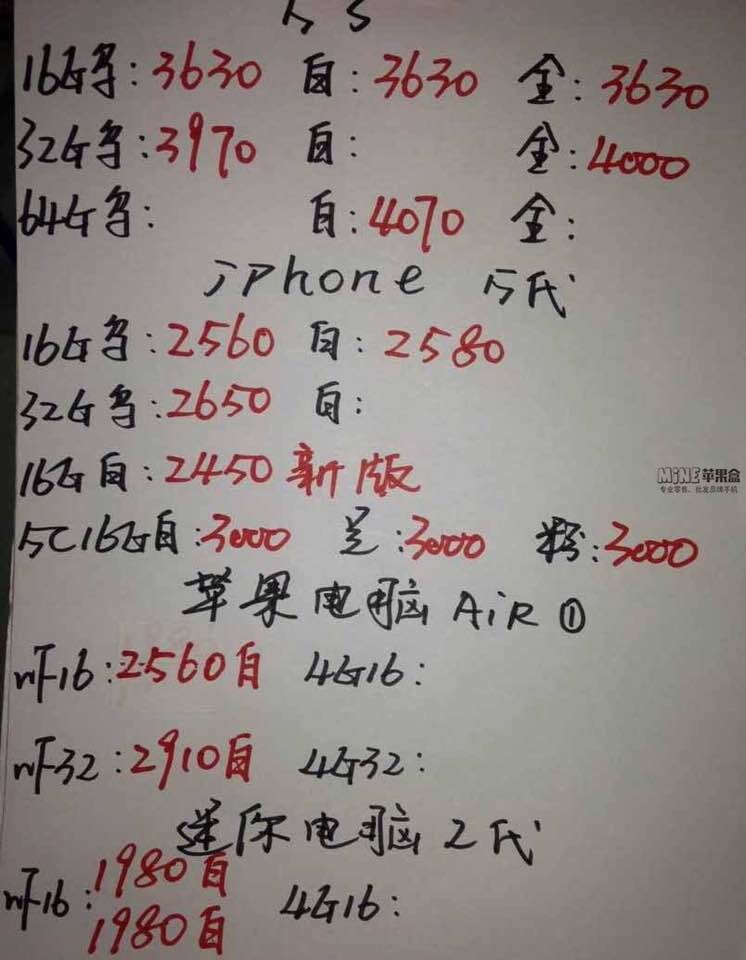 5S
16G黑:3630 白:3630 金:3630
32G黑:3970 白: 金:4000
64G黑: 白:4070 金:
iPhone 5代
16G黑:2560 白:2580
32G黑:2650 白:
16G白:2450 新版
5C16G白:3000 兰:3000 粉:3000
MiNE苹果盒
专业零售、批发品牌手机
苹果电脑 AiR ①
wF16:2560白 4G16:
wF32:2910白 4G32:
迷你电脑 2代
wF16:1980白 4G16:
1980白